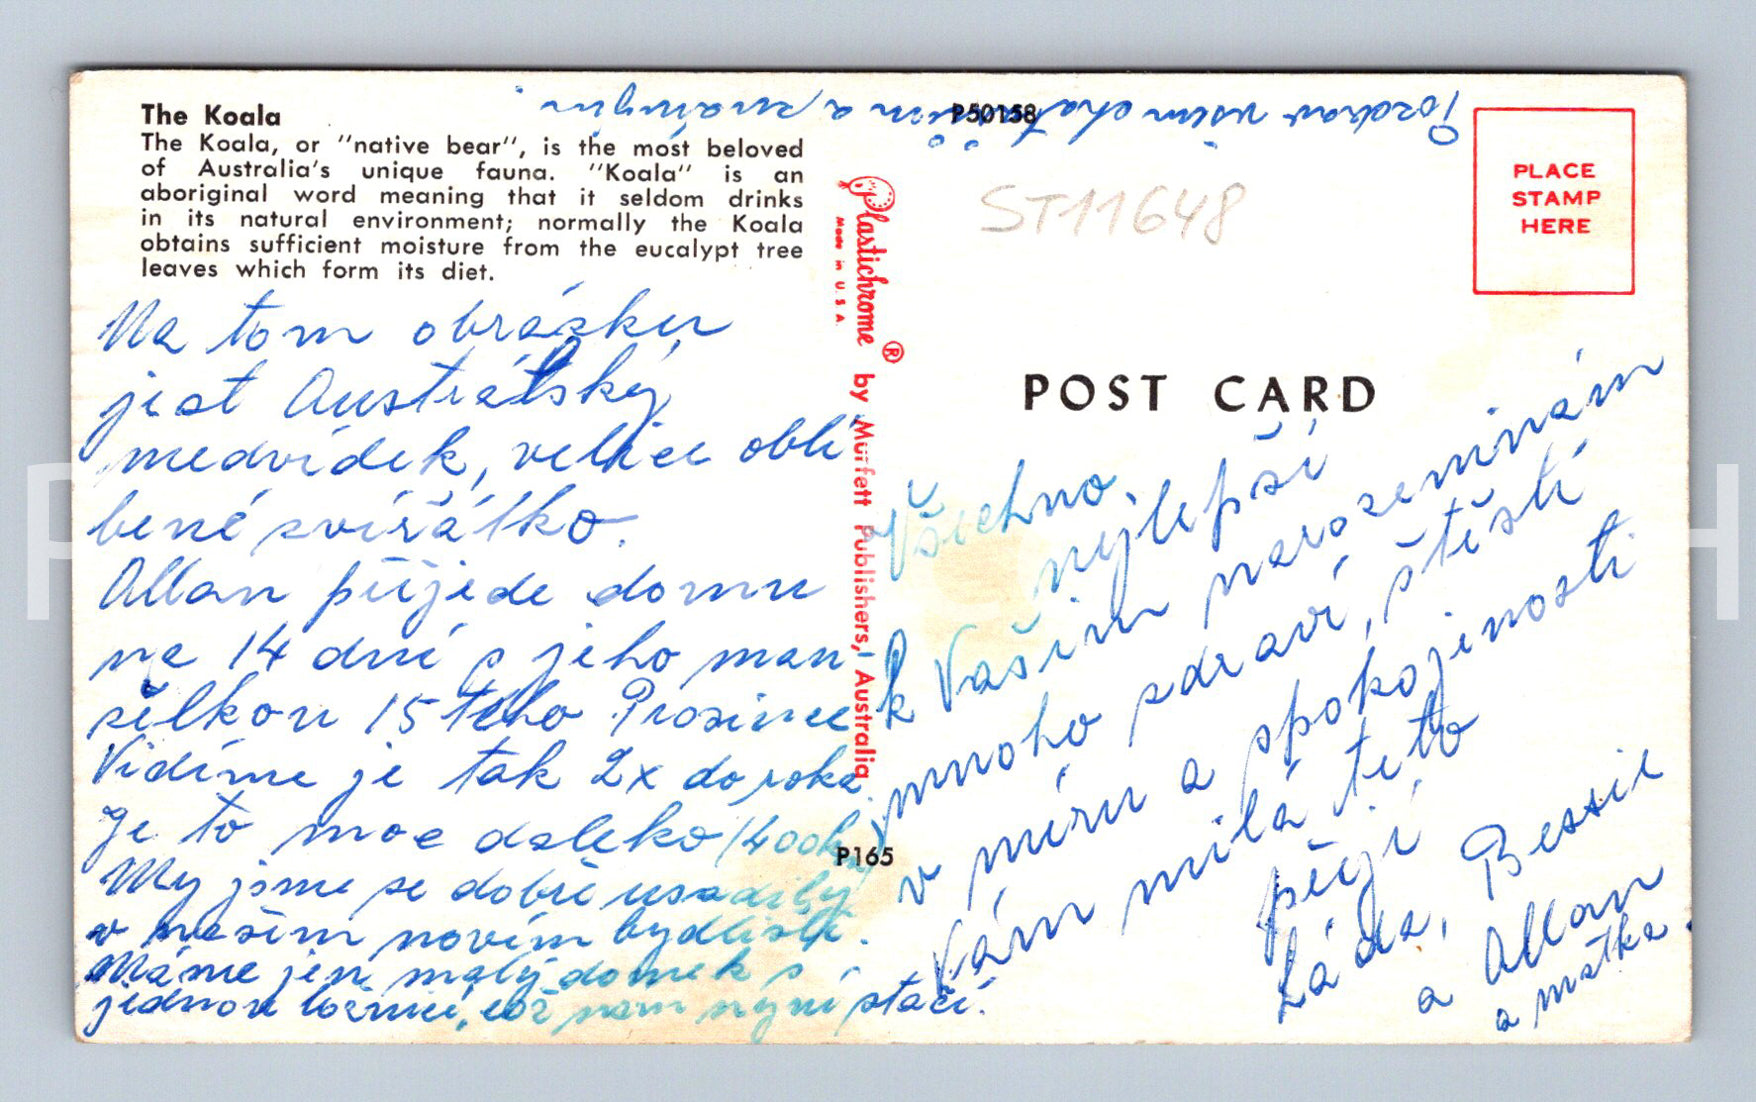 The Koala
The Koala, or "native bear", is the most beloved
of Australia's unique fauna. "Koala" is an
aboriginal word meaning that it seldom drinks
in its natural environment; normally the Koala
obtains sufficient moisture from the eucalypt tree
leaves which form its diet.
Na tom obrázku
jest Australský
medvídek, velice oblí
bené zvířátko.
Allan přijede domu
na 14 dní s jeho man
želkou 15 teho Prosince
Vidíme je tak 2x do roka.
Je to moc daleko 1400km
My jsme se dobře usadily
v našim novím bydlišti.
Máme jen malý domek s
jednou ložnicí, což nam nyní stačí.
Plastichrome ® by Murfett Publishers, Australia
Made in U.S.A.
P165
P50158
Pozdrav všim chatařům a známym.
ST11648
PLACE
STAMP
HERE
POST CARD
Všechno
nejlepší
k Vašim narozeninám
mnoho zdraví, štěstí
v míru a spokojenosti
Vám milá teto
přejí
Láda, Bessie
a Allan
a matka.